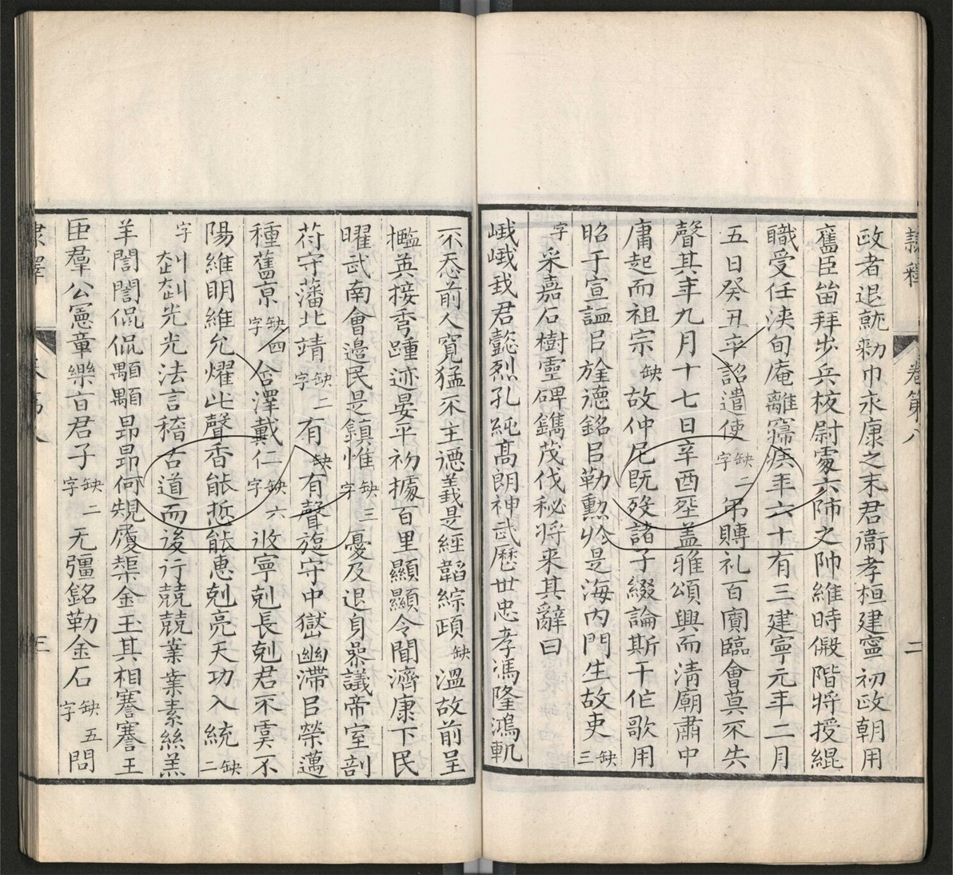 隸釋 卷第八 二
政者退就勑巾永康之末君衞孝桓建寧初政朝用
舊臣留拜步兵校尉處六師之帥維時假階將授緄
職受任浹旬庵離寢疾年六十有三建寧元年二月
五日癸丑卒詔遣使缺二字弔賻礼百寮臨會莫不失
聲其年九月十七日辛酉𦵏盖雅頌興而清廟肅中
庸起而祖宗缺故仲尼旣歿諸子綴論斯干作歌用
昭于宣謚㠯旌德銘㠯勒勲於是海内門生故吏缺三
字采嘉石樹霊碑鐫茂伐秘将来其辭曰
峨峨我君懿烈孔純髙朗神武歷世忠孝馮隆鴻軌
不忝前人寬猛不主德義是經韜綜頤缺溫故前呈
檻英接夸踵迹晏平初據百里顯顯令聞濟康下民
曜武南會邊民是鎮惟缺三字憂及退身叅議帝室剖
苻守藩北靖缺二字有缺有聲旋守中嶽幽滯㠯榮邁
種舊京缺四字含澤戴仁缺六字㳊寧剋長剋君不虞不
陽維明維允燿此聲香能悊能惠剋亮天功入統缺二
字𠜇𠜇光光法言稽古道而後行兢兢業業素絲羔
羊誾誾侃侃顒顒昂昂何規履榘金玉其相謇謇王
臣羣公憲章樂旨君子缺二字无彊銘勒金石缺五字問
隸釋 卷第八 三